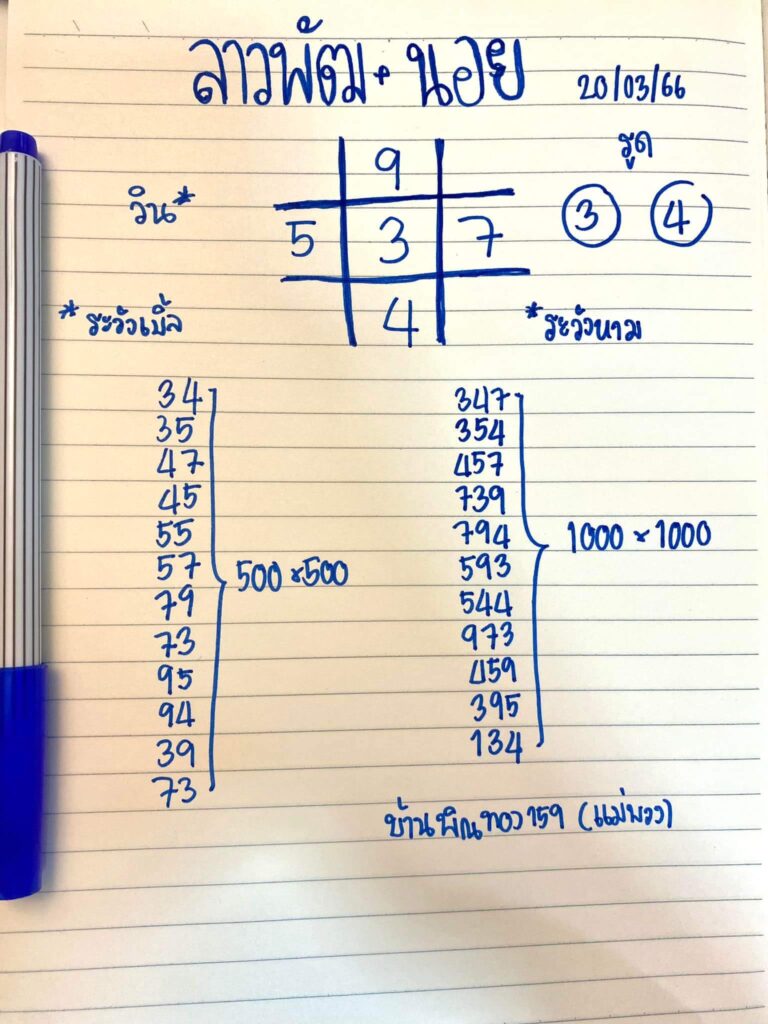 ลาวพัฒ + นอย 20/03/66
รูด
9
วิน* 5 3 7 3 4
4
*ระวังเบิ้ล *ระวังหาม
34 347
35 354
47 457
45 739
55 794
1000 × 1000
57 593
500 × 500
79 544
73 973
95 459
94 395
39 134
73
บ้านพิณทอง 159 (แม่พวง)